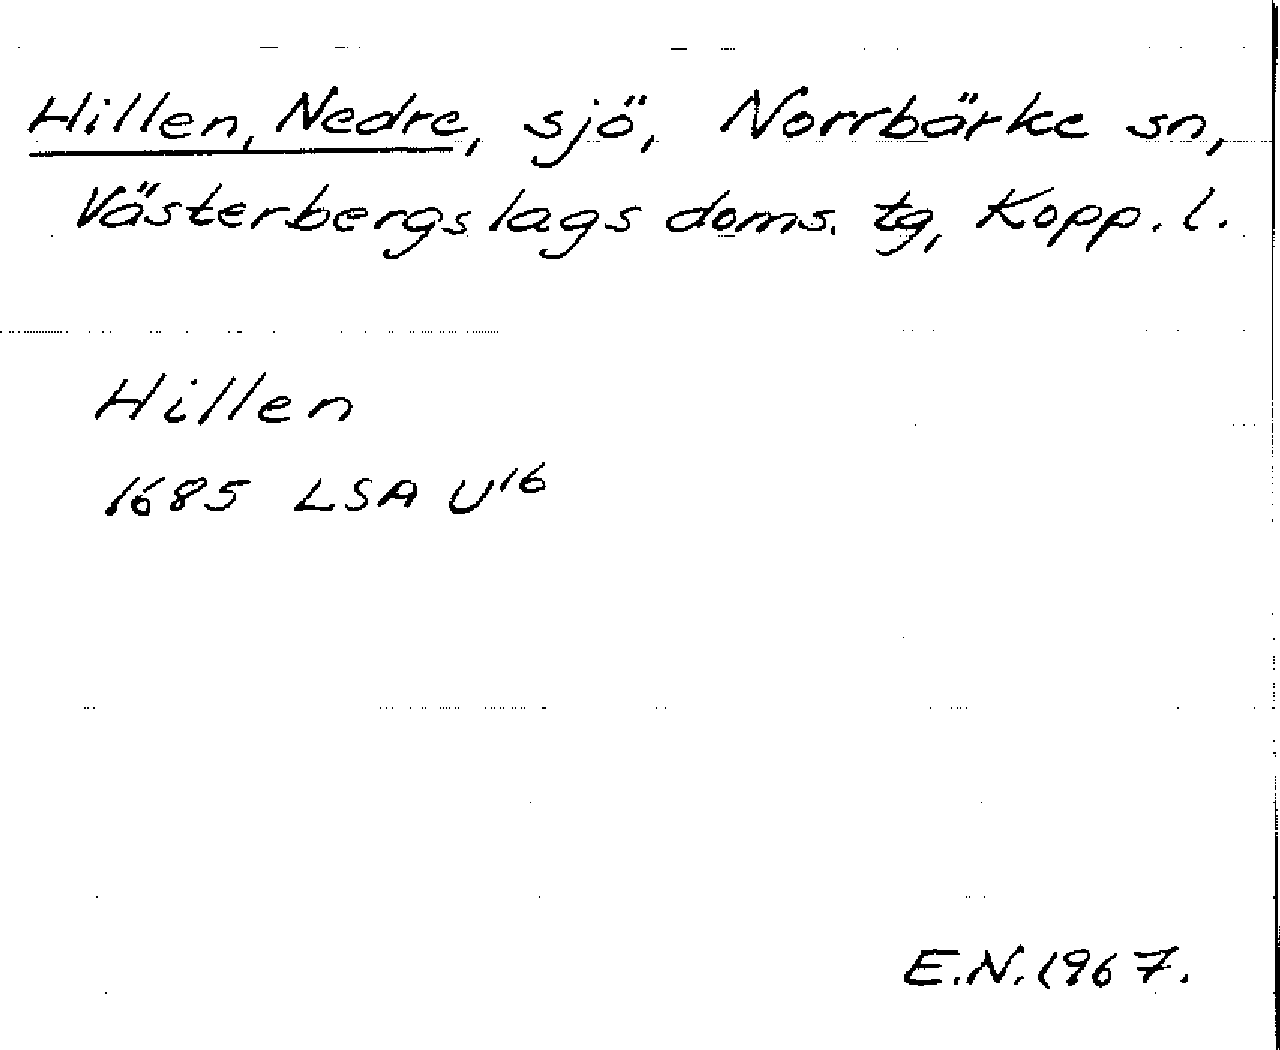 Hillen, Nedre, sjö, Norrbärke sn,
Västerbergslags doms. tg, Kopp. l.
Hillen
1685 LSA U16
E.N. 1967.